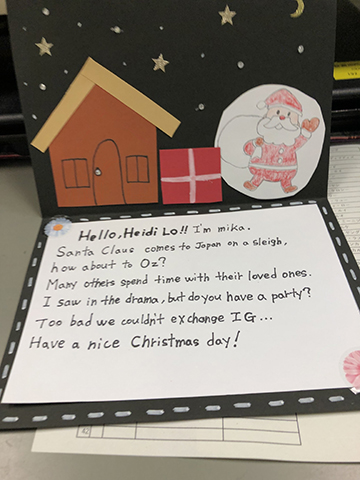 Hello, Heidi Lo!! I'm mika.
Santa Claus comes to Japan on a sleigh,
how about to Oz?
Many others spend time with their loved ones.
I saw in the drama, but do you have a party?
Too bad we couldn't exchange IG...
Have a nice Christmas day!
42